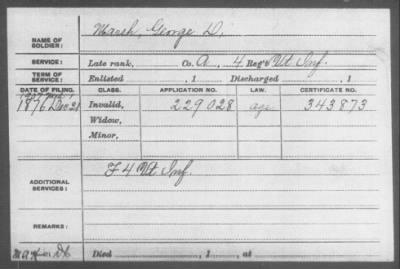 NAME OF SOLDIER: Marsh, George D.
SERVICE: Late rank, Co. A, 4 Reg't Vt Inf.
TERM OF SERVICE: Enlisted , 1 Discharged , 1
DATE OF FILING. CLASS. APPLICATION NO. LAW. CERTIFICATE NO.
1876 Dec 21 Invalid, 229028 age 343873
Widow,
Minor,
ADDITIONAL SERVICES: F 4 Vt Inf.
REMARKS:
Died , 1 , at